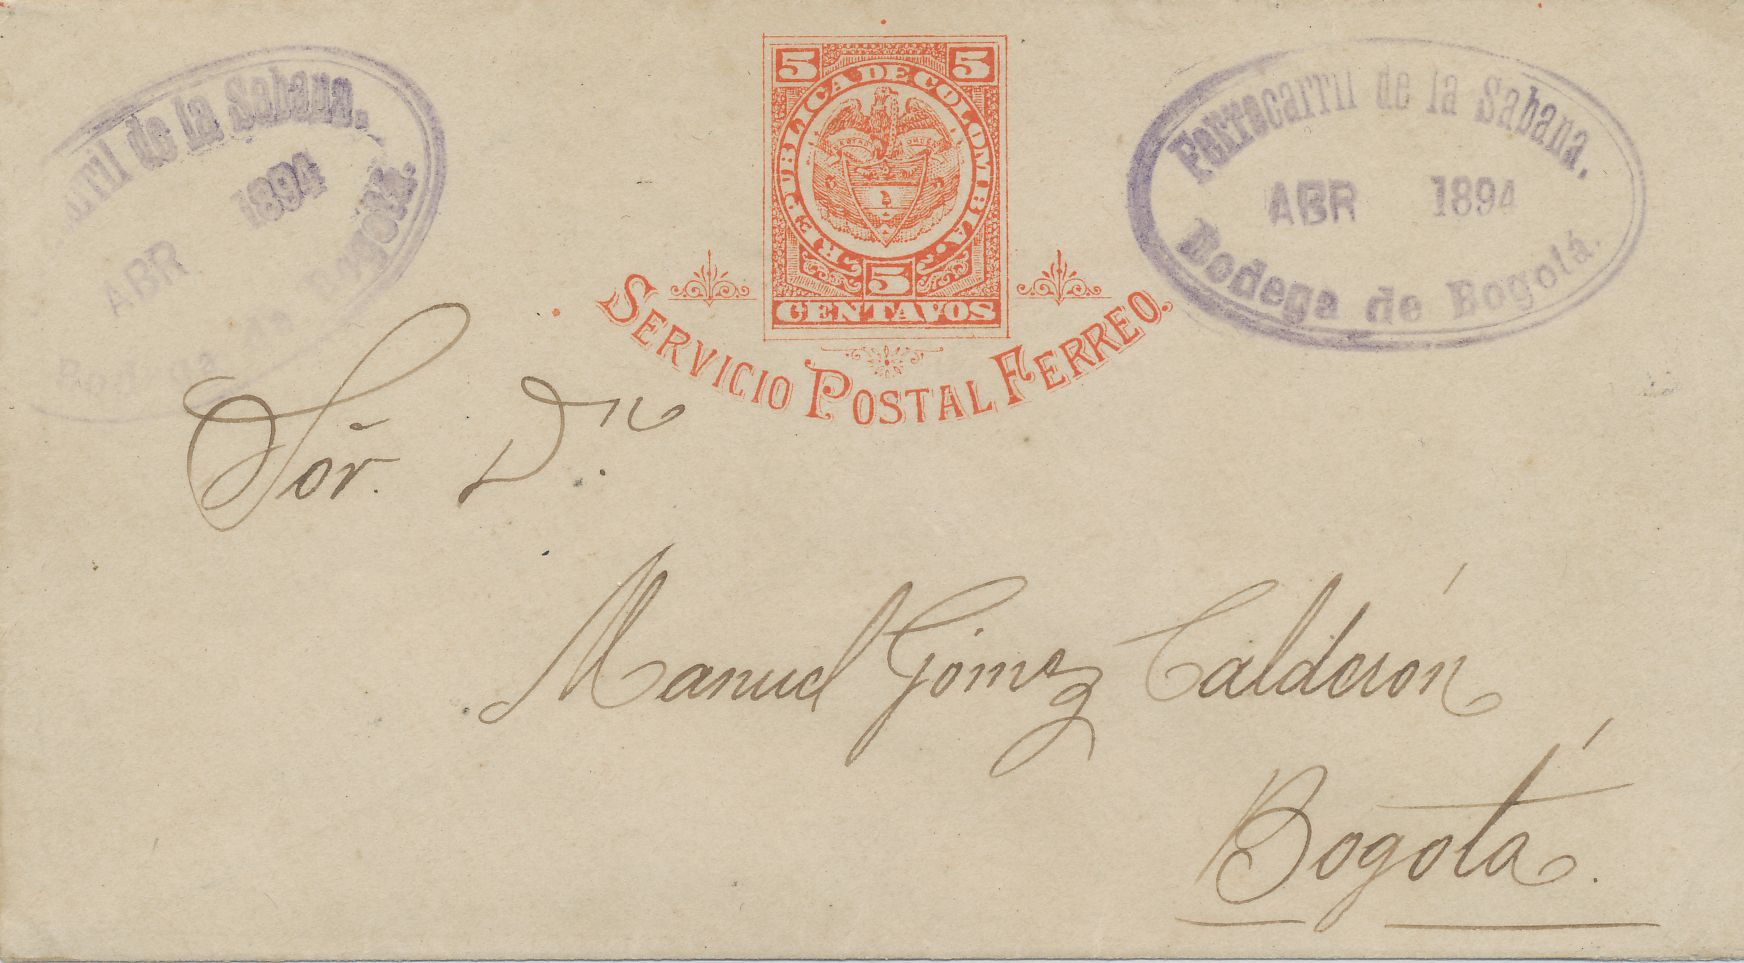 Ferrocarril de la Sabana.
ABR 1894
Bodega de Bogotá.
5 5
REPUBLICA DE COLOMBIA.
5
CENTAVOS
SERVICIO POSTAL FERREO.
Ferrocarril de la Sabana.
ABR 1894
Bodega de Bogotá.
Sõr. Dn.
Manuel Gómez Calderón
Bogotá.